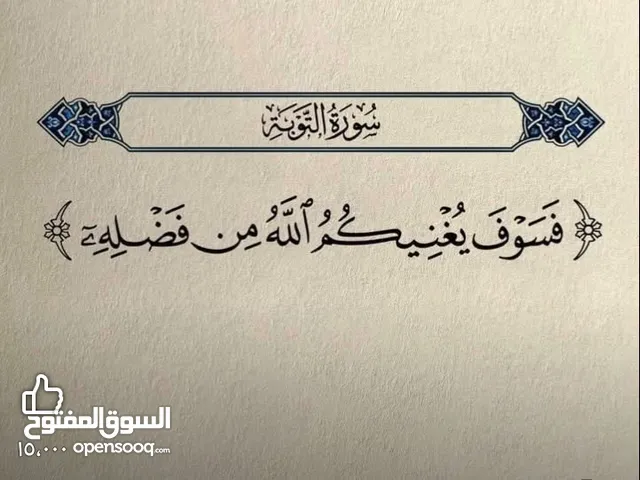 سُورَةُ التَّوْبَةِ
﴿ فَسَوْفَ يُغْنِيكُمُ ٱللَّهُ مِن فَضْلِهِۦٓ ﴾
السوق المفتوح
opensooq.com
١٥,٠٠٠